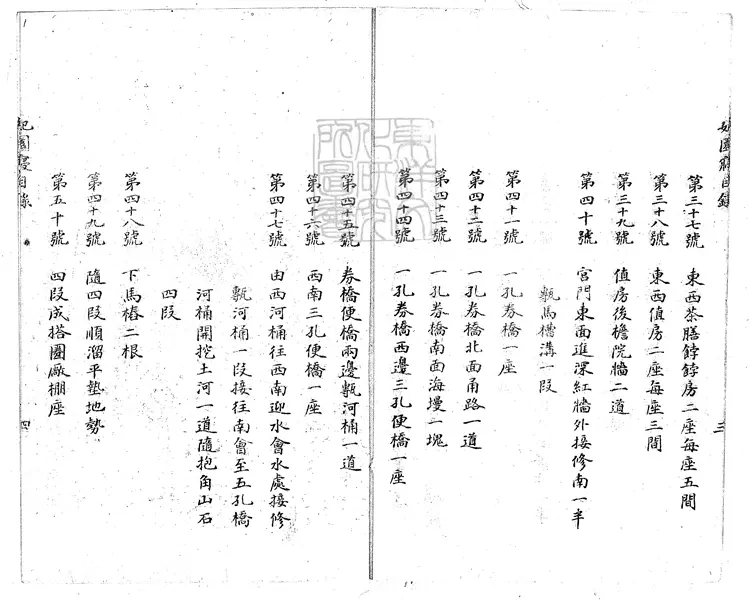 妃園寢目錄
三
第三十七號 東西茶膳餑餑房二座每座五間
第三十八號 東西值房二座每座三間
第三十九號 值房後檐院牆二道
第四十號 宮門東面進深紅牆外接修南一半
甎馬槽溝一段
第四十一號 一孔券橋一座
第四十二號 一孔券橋北面甬路一道
第四十三號 一孔券橋南面海墁二塊
第四十四號 一孔券橋西邊三孔便橋一座
第四十五號 券橋便橋兩邊甎河桶一道
第四十六號 西南三孔便橋一座
第四十七號 由西河桶往西南迎水會水處接修
甎河桶一段接往南會至五孔橋
河桶開挖土河一道隨抱角山石
四段
第四十八號 下馬樁二根
第四十九號 隨四段順溜平墊地勢
第五十號 四段成搭圈廠棚座
妃園寢目錄
四